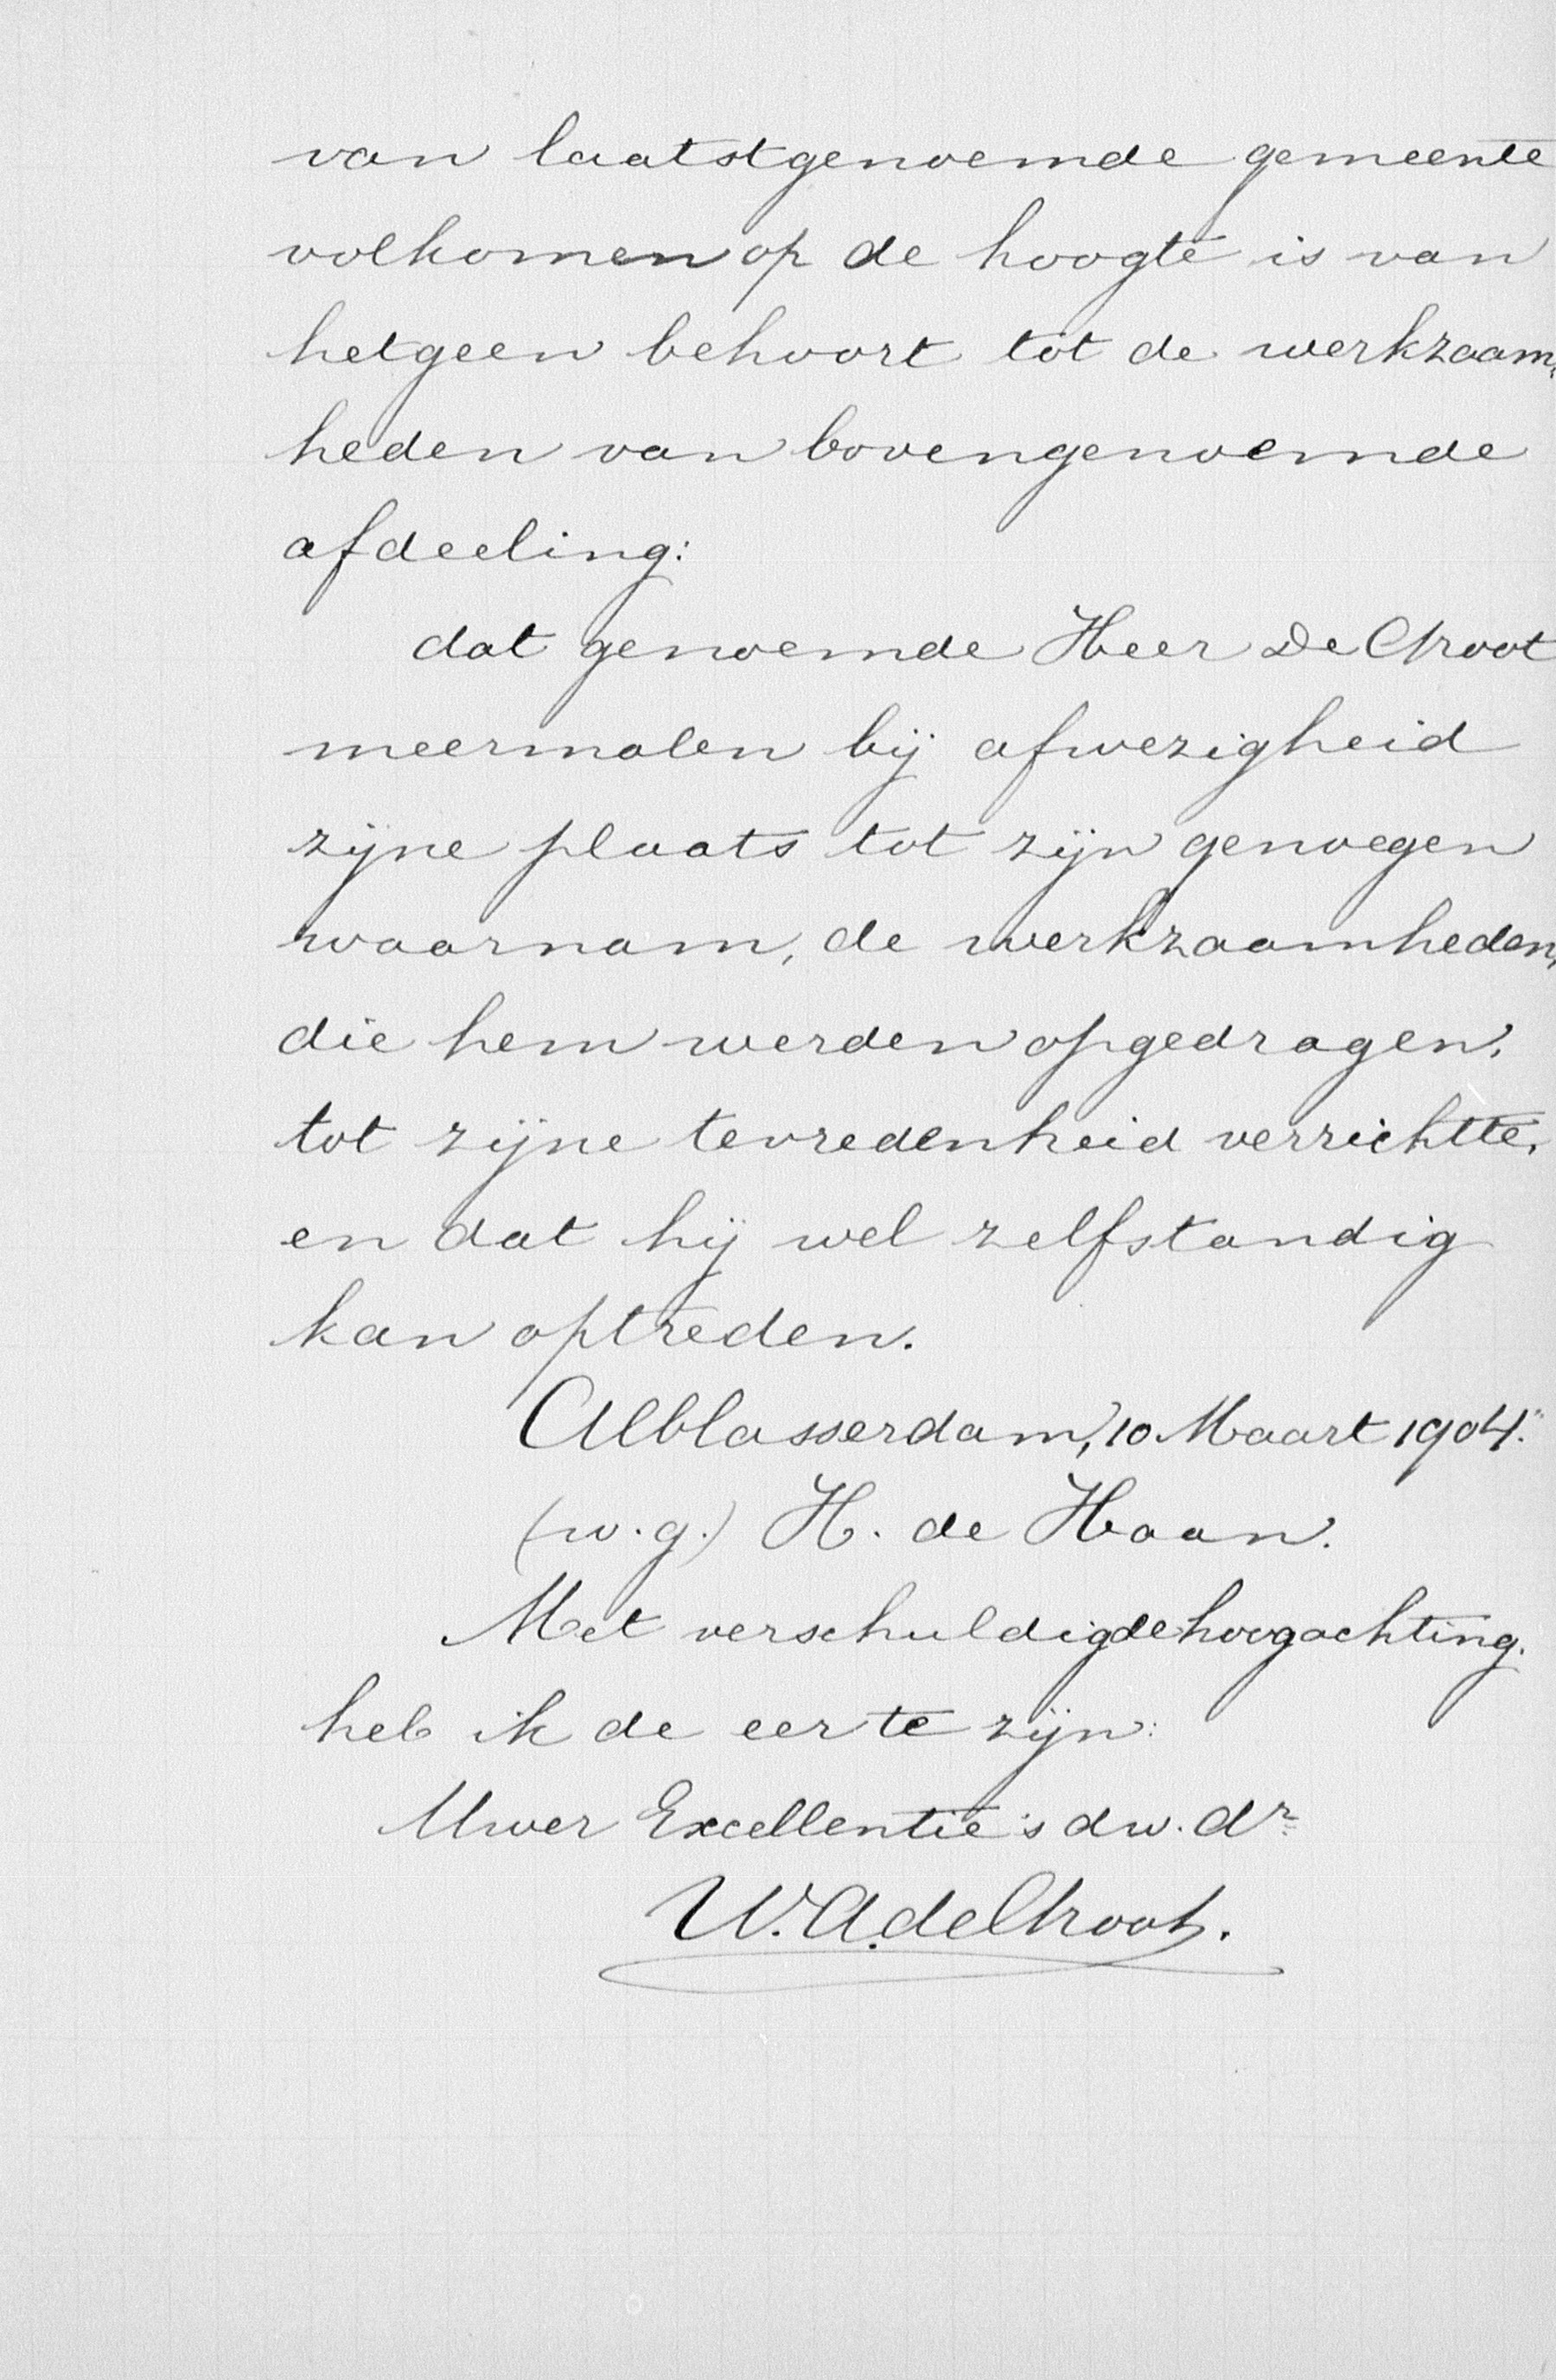 van laatstgenoemde gemeente
volkomen op de hoogte is van
hetgeen behoort tot de werkzaam„
heden van bovengenoemde
afdeeling:
dat genoemde Heer De Groot
meermalen bij afwezigheid
zijne plaats tot zijn genoegen
waarnam, de werkzaamheden,
die hem werden opgedragen,
tot zijne tevredenheid verrichtte,
en dat hij wel zelfstandig
kan optreden.
Alblasserdam, 10 Maart 1904."
(w.g.) H. de Haan.
Met verschuldigde hoogachting.
heb ik de eer te zijn:
Uwer Excellentie's dw. dr
W. A. de Groot.